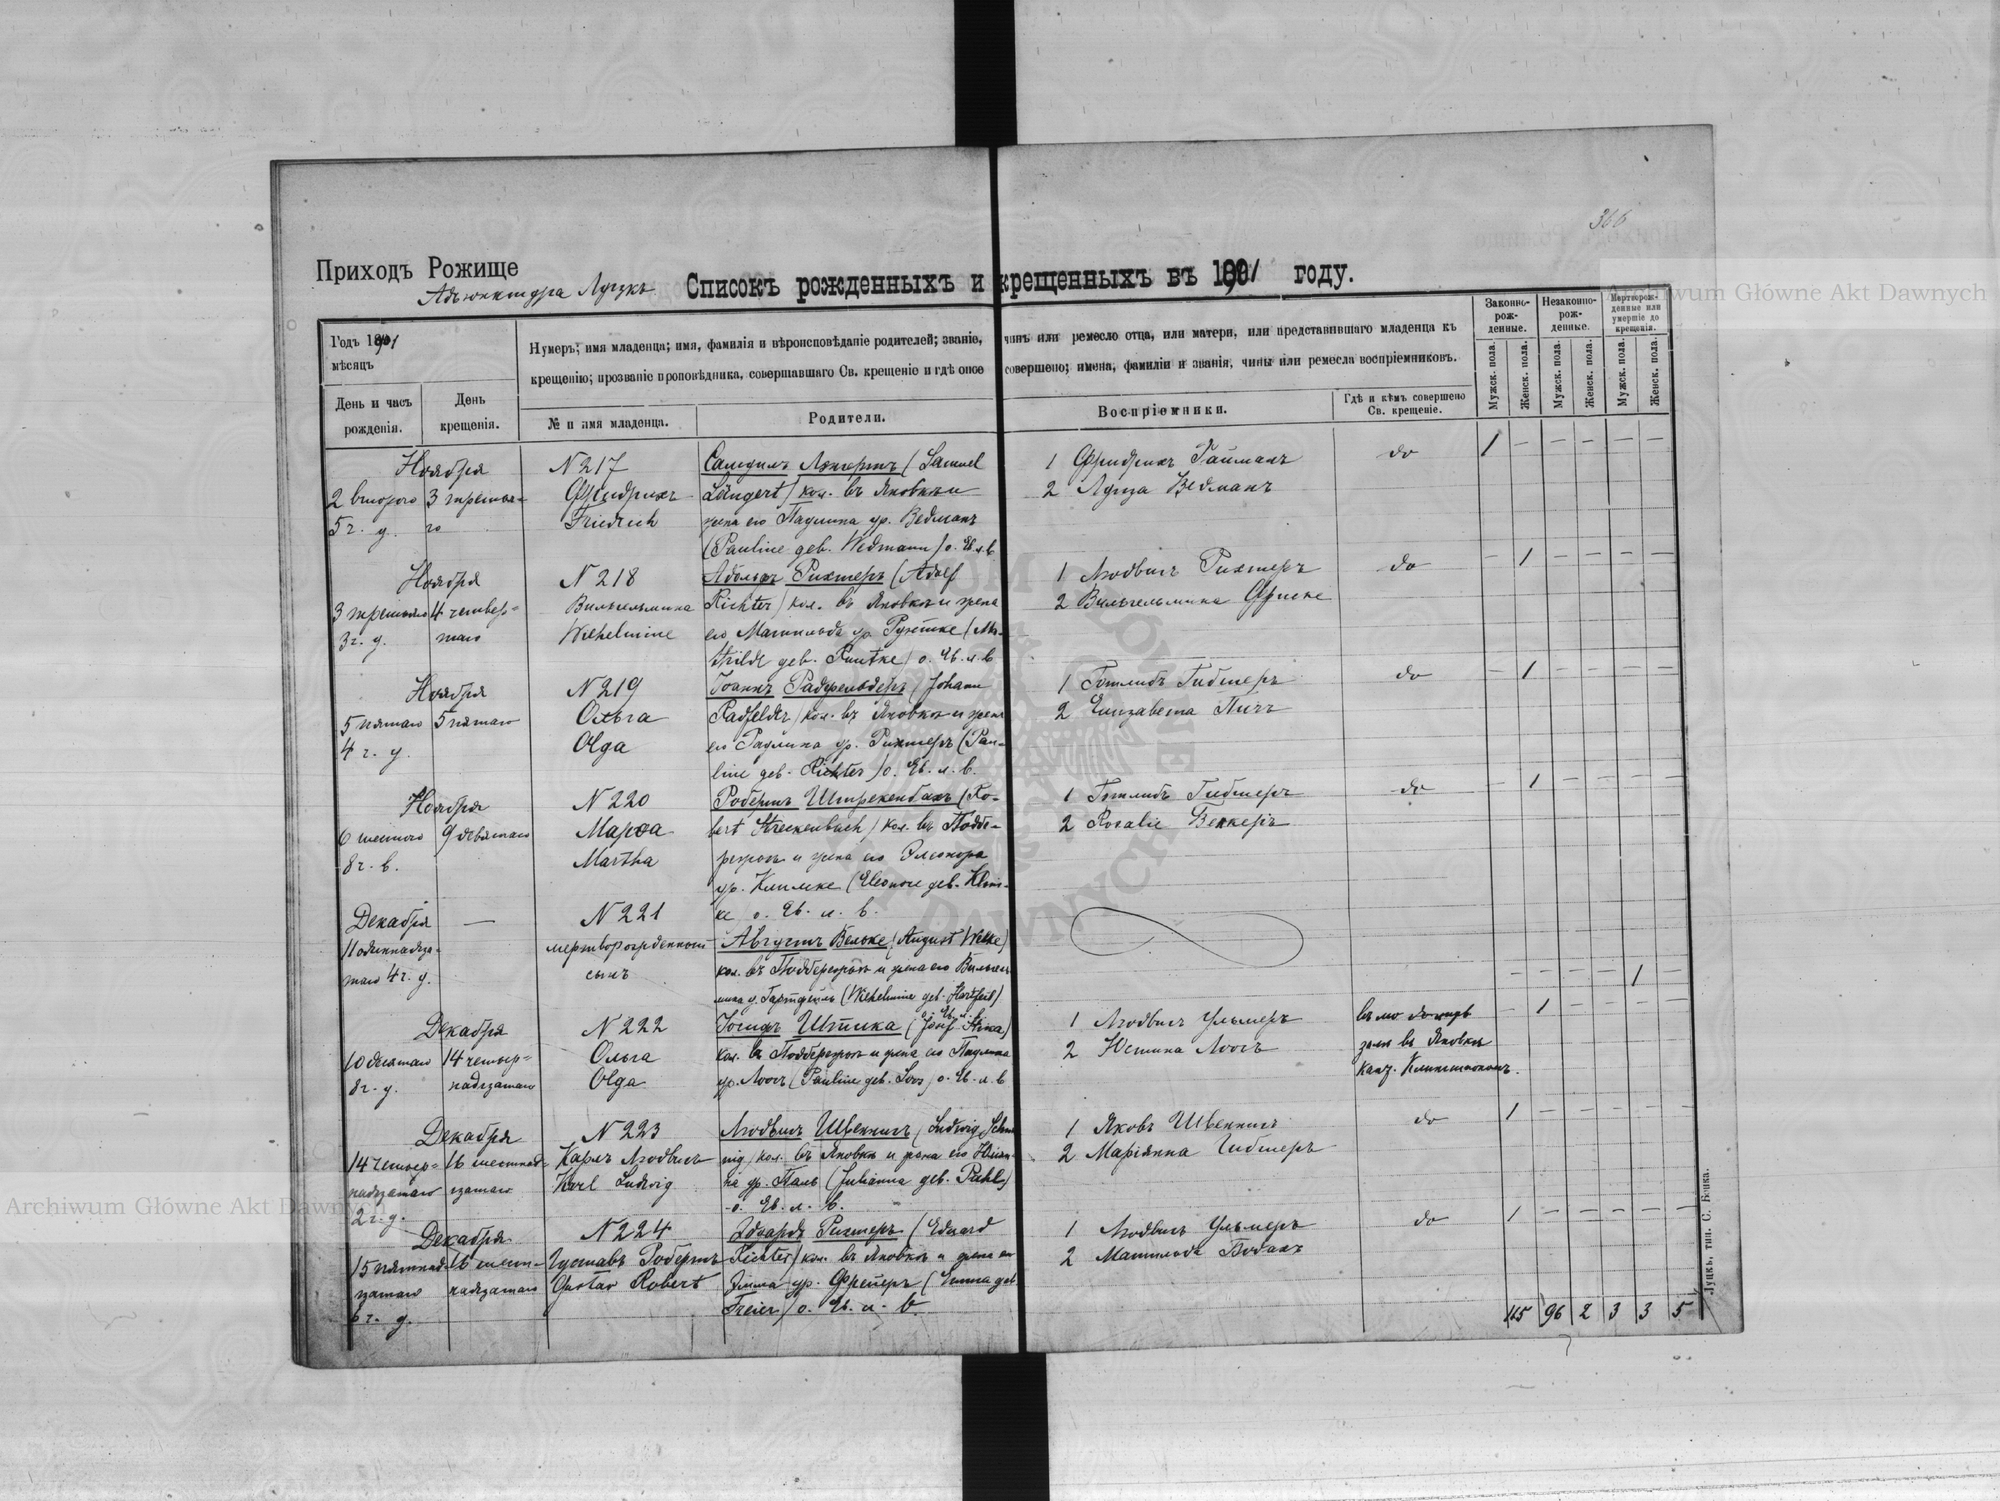 366
Приходъ Рожище
Адъюнктура Луцкъ
Списокъ рожденныхъ и крещенныхъ въ 1891 году.
Годъ 1891
мѣсяцъ
День и часъ рожденія.
День крещенія.
Нумеръ; имя младенца; имя, фамилія и вѣроисповѣданіе родителей; званіе, чинъ или ремесло отца, или матери, или представившаго младенца къ
крещенію; прозваніе проповѣдника, совершавшаго Св. крещеніе и гдѣ оное совершено; имена, фамиліи и званія, чины или ремесла воспріемниковъ.
№ и имя младенца.
Родители.
Воспріемники.
Гдѣ и кѣмъ совершено Св. крещеніе.
Законно-рож-денные.
Незаконно-рож-денные.
Мертворож-денные или умершіе до крещенія.
Мужск. пола.
Женск. пола.
Мужск. пола.
Женск. пола.
Мужск. пола.
Женск. пола.
Ноября
2 второго 3 третья-
5 ч. у. го
N 217
Фридрихъ
Friedrich
Самуилъ Лэнгертъ (Samuel
Längert) кол. въ Яновкѣ и
жена его Паулина ур. Ведманъ
(Pauline geb. Wedmann) о. Ев. л. в.
1 Фридрихъ Райманъ
2 Луиза Ведманъ
do
1 – – – – –
Ноября
3 третьяго 4 четвер-
3 ч. у. таго
N 218
Вильгельмина
Wilhelmine
Адольфъ Рихтеръ (Adolf
Richter) кол. въ Яновкѣ и жена
его Матильда ур. Рутке (Ma-
thilde geb. Rutke) о. Ев. л. в.
1 Людвигъ Рихтеръ
2 Вильгельмина Фриске
do
– 1 – – – –
Ноября
5 пятаго 5 пятаго
4 ч. у.
N 219
Ольга
Olga
Іоаннъ Радфельдеръ (Johann
Radfelder) кол. въ Яновкѣ и жена
его Паулина ур. Рихтеръ (Pau-
line geb. Richter) о. Ев. л. в.
1 Готлибъ Гибнеръ
2 Елизавета Пичъ
do
– 1 – – – –
Ноября
6 шестого 9 девятаго
8 ч. в.
N 220
Марѳа
Martha
Робертъ Штрекенбахъ (Ro-
bert Streckenbach) кол. въ Поддбе-
режьѣ и жена его Элеонора
ур. Климке (Eleonore geb. Klim-
ke о. Ев. л. в.
1 Готлибъ Гибнеръ
2 Rosalie Беккеръ
do
– 1 – – – –
Декабря –
11 одиннадца-
таго 4 ч. у.
N 221
мертворожденный
сынъ
Августъ Вельке (August Welke)
кол. въ Поддбережьѣ и жена его Вильгель
мина у. Гартфейль (Wilhelmine geb. Hartfeil)
о. Ев. л. в.
– – – – 1 –
Декабря
10 десятаго 14 четыр-
8 ч. у. надцатаго
N 222
Ольга
Olga
Іосифъ Штика (Josef Stika)
кол. въ Поддбережьѣ и жена его Паулина
ур. Лоосъ (Pauline geb. Loos) о. Ев. л. в.
1 Людвигъ Ульмеръ
2 Юстина Лоосъ
въ мо
въ Яновкѣ
– 1 – – – –
Декабря
14 четыр- 16 шестнад-
надцатаго цатаго
2 ч. у.
N 223
Карлъ Людвигъ
Karl Ludwig
Людвигъ Швеннигъ (Ludwig Schwe
nig) кол. въ Яновкѣ и жена его Юліан-
на ур. Паль (Julianna geb. Pahl)
о. Ев. л. в.
1 Яковъ Швеннигъ
2 Маріянна Гибнеръ
do
1 – – – – –
Декабря
15 пятнад- 16 шест-
цатаго надцатаго
6 ч. у.
N 224
Густавъ Робертъ
Gustav Robert
Эдуардъ Рихтеръ (Eduard
Richter) кол. въ Яновкѣ и жена его
Эмма ур. Фрейеръ (Emma geb.
Freier) о. Ев. л. в.
1 Людвигъ Ульмеръ
2 Матильда Боданъ
do
1 – – – – –
115 96 2 3 3 5
Луцкъ, тип. С. Бонка.
Archiwum Główne Akt Dawnych
Archiwum Główne Akt Dawnych